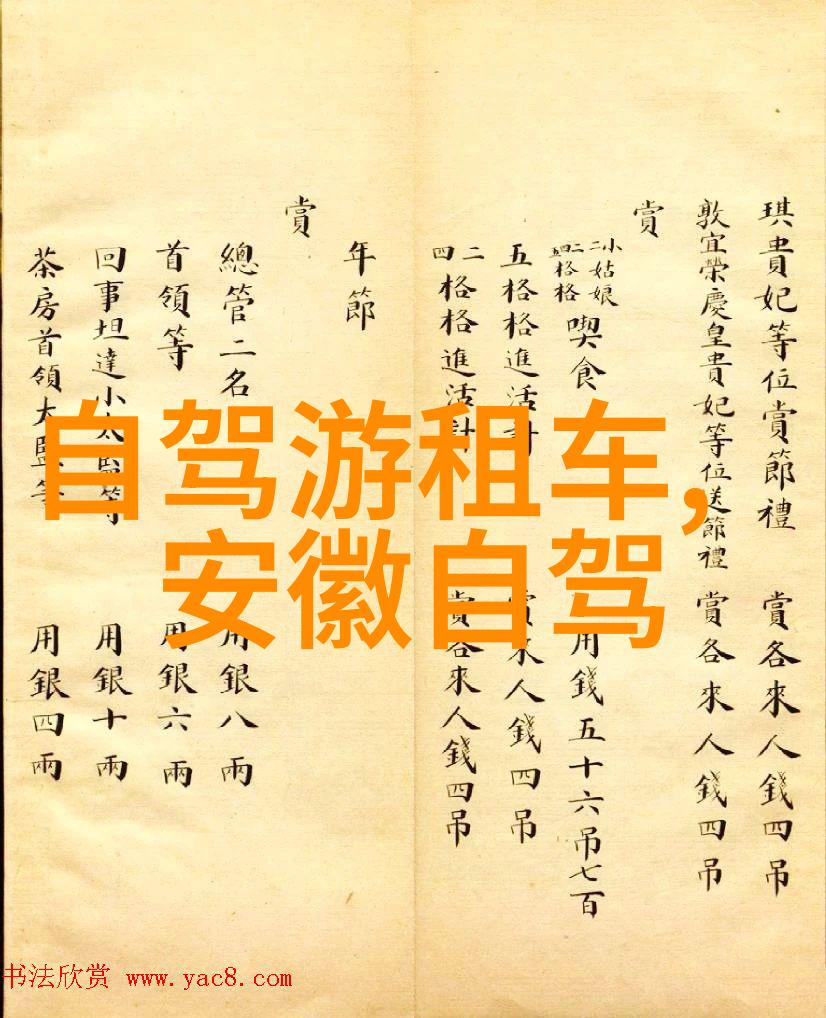 自驾游租车,
安徽自驾
琪貴妃等位賞節禮 賞各來人錢四吊
敦宜榮慶皇貴妃等位送節禮 賞各來人錢四吊
賞
小二姑娘 二四格格 喫食 用錢五十六吊七百
五格格進活計 賞來人錢四吊
二四格格進活計 賞各來人錢四吊
年節
賞
總管二名 用銀八兩
首領等 用銀六兩
回事坦達小太監等 用銀十兩
茶房首領太監等 用銀四兩
书法欣赏 www.yac8.com